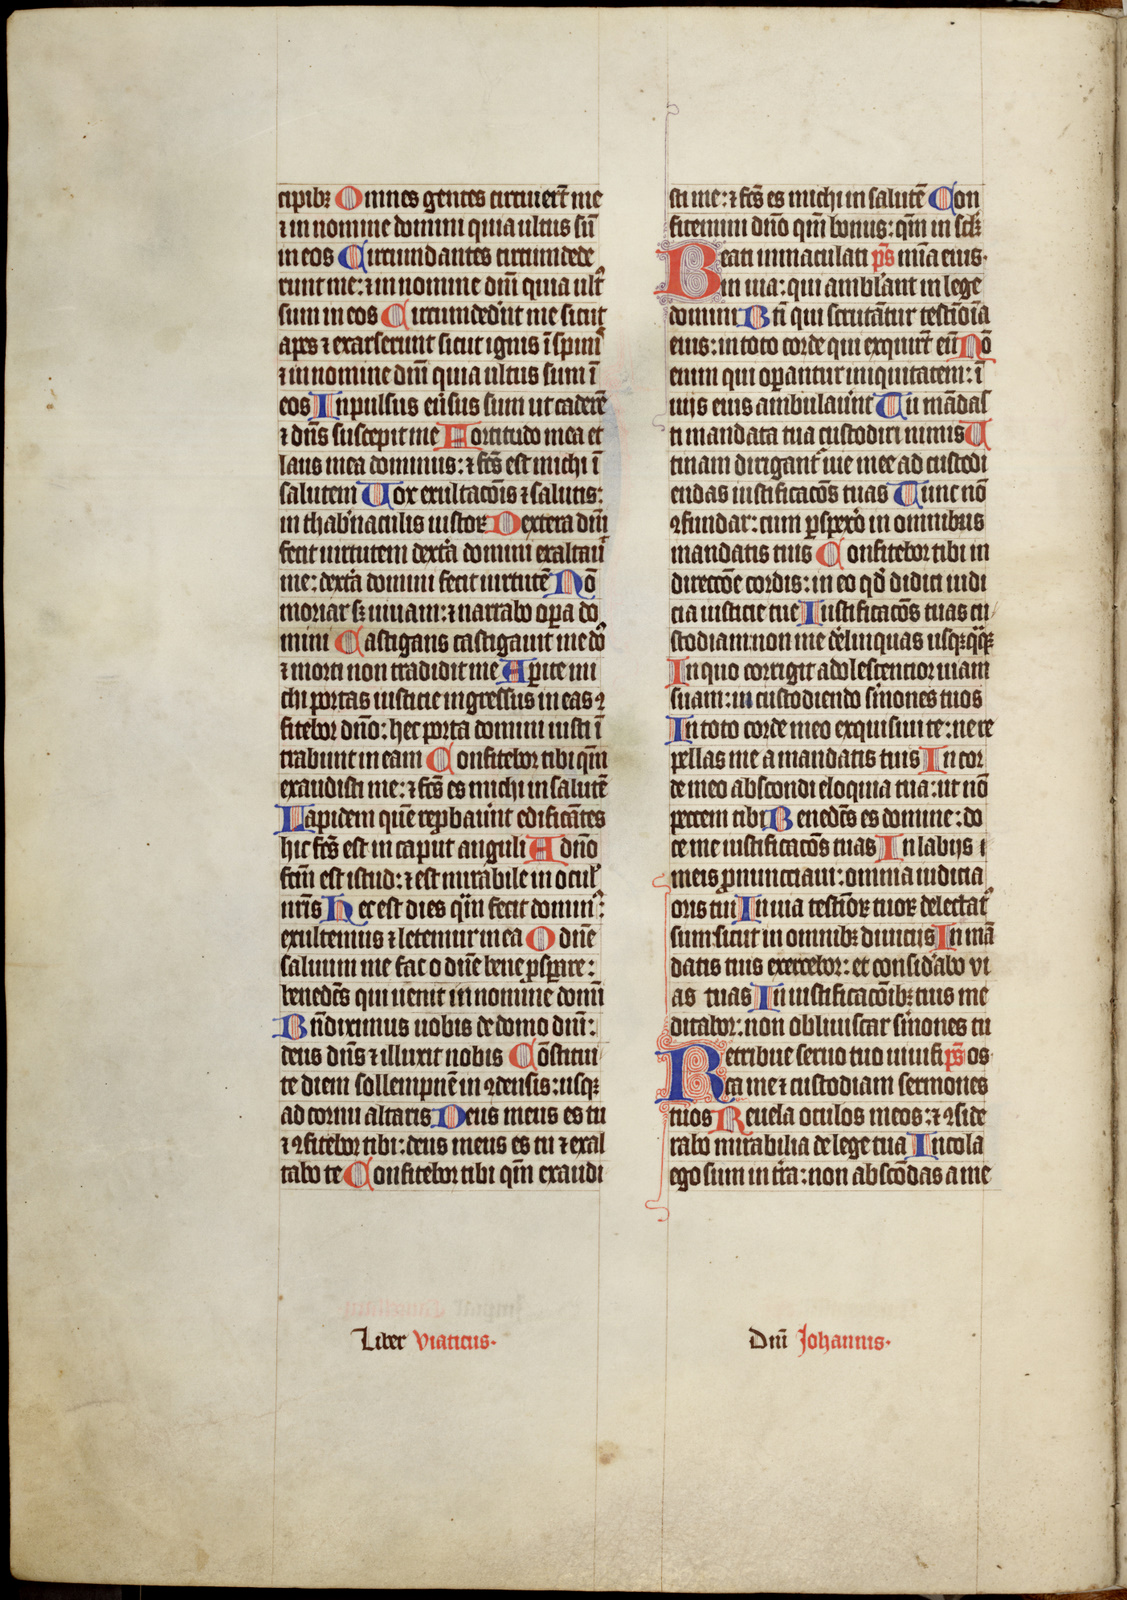 cipibꝫ Omnes gentes circuierūt me
⁊ in nomine domini quia ultus sū
in eos Circumdantes circumdede
runt me: ⁊ in nomine dn̄i quia ult᷒
sum in eos Circumdedūt me sicut
apes ⁊ exarserunt sicut ignis ī spinis
⁊ in nomine dn̄i quia ultus sum ī
eos Inpulsus eūsus sum ut caderē
⁊ dn̄s suscepit me Fortitudo mea et
laus mea dominus: ⁊ fc̄s est michi ī
salutem Vox exultacōis ⁊ salutis:
in thab'naculis iustoꝝ Dextera dn̄i
fecit uirtutem dext'a domini exaltauit
me: dext'a domini fecit uirtutē Nō
moriar sꝫ uiuam: ⁊ narrabo op̄a do
mini Castigans castigauit me dn̄s
⁊ morti non tradidit me Aperite mi
chi portas iusticie ingressus in eas ꝯ
fitebor dn̄o: hec porta domini iusti ī
trabunt in eam Confitebor tibi qm̄
exaudisti me: ⁊ fc̄s es michi in salutē
Lapidem quē reprobauūt edificātes
hic fc̄s est in caput anguli A dn̄o
fcm̄ est istud: ⁊ est mirabile in ocul'
nr̄is Hec est dies qm̄ fecit domin᷒:
exultemus ⁊ letemur in ea O dn̄e
saluum me fac o dn̄e bene ꝓspare:
benedc̄s qui uenit in nomine domī
Bn̄diximus uobis de domo dn̄i:
deus dn̄s ⁊ illuxit nobis Cōstitui
te diem sollempnē in ꝯdensis: usqꝫ
ad cornu altaris Deus meus es tu
⁊ ꝯfitebor tibi: deus meus es tu ⁊ exal
tabo te Confitebor tibi qm̄ exaudi
sti me: ⁊ fc̄s es michi in salutē Con
fitemini dn̄o qm̄ bonus: qm̄ in sclꝫ
Beati immaculati p̄s mīa eius.
in uia: qui ambl'ant in lege
domini Bt̄i qui scrutātur testīōia
eius: in toto corde qui exquirūt eū Nō
enim qui op̄antur iniquitatem: ī
uiis eius ambulauūt Tu mādas
ti mandata tua custodiri nimis V
tinam dirigant᷒ uie mee ad custodi
endas iustificacōs tuas Tunc nō
ꝯfundar: cum ꝑspexō in omnibus
mandatis tuis Confitebor tibi in
direccōe cordis: in eo qd̄ didici iudi
cia iusticie tue Iustificacōs tuas cu
stodiam: non me dēlinquas usqꝫqꝫ
In quo corrigit adolescencior uiam
suam: in custodiendo s'mones tuos
In toto corde meo exquisiui te: ne re
pellas me a mandatis tuis In cor
de meo abscondi eloquia tua: ut nō
peccem tibi Benedc̄s es domine: do
ce me iustificacōs tuas In labijs
meis ꝓnunciaui: omnia iudicia
oris tui In uia testīoꝝ tuoꝝ delectat᷒
sum: sicut in omnibꝫ diuiciis In mā
datis tuis exercebor: et consid'abo vi
as tuas In iustificacōibꝫ tuis me
ditabor: non obliuiscar s'mones tu
Retribue seruo tuo uiuifi p̄s os.
ca me ⁊ custodiam sermones
tuos Reuela oculos meos: ⁊ ꝯside
rabo mirabilia de lege tua Incola
ego sum in t'ra: non abscōdas a me
Liber Viaticus.
Dn̄i Johannis.